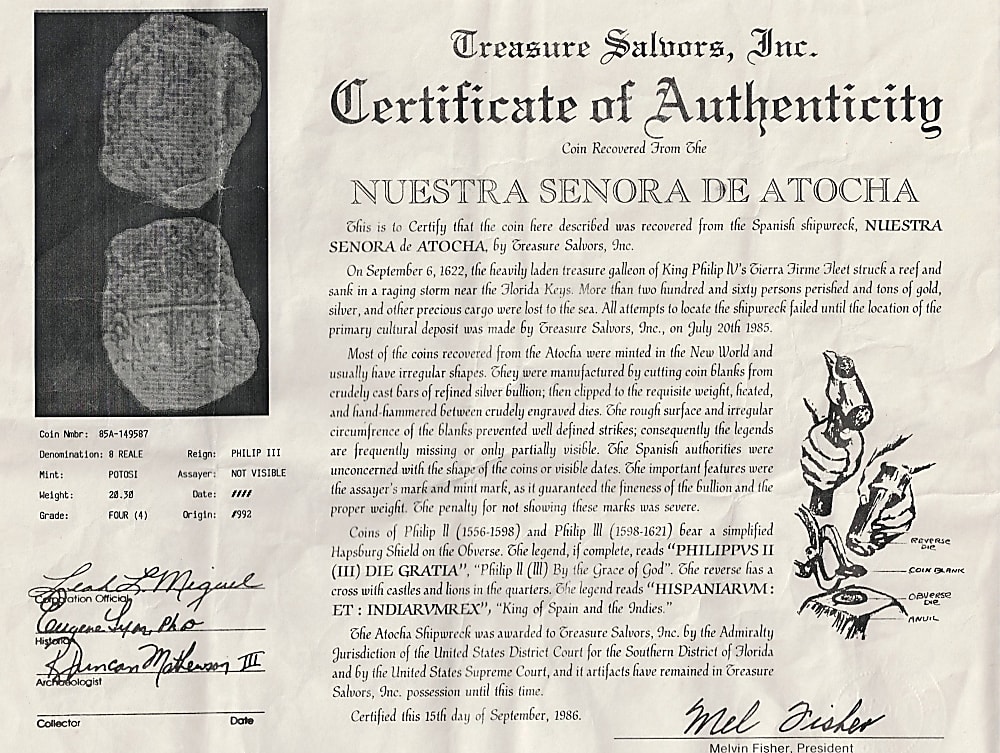 Treasure Salvors, Inc.
Certificate of Authenticity
Coin Recovered From The
NUESTRA SENORA DE ATOCHA
This is to Certify that the coin here described was recovered from the Spanish shipwreck, NUESTRA
SENORA de ATOCHA, by Treasure Salvors, Inc.
On September 6, 1622, the heavily laden treasure galleon of King Philip IV's Tierra Firme Fleet struck a reef and
sank in a raging storm near the Florida Keys. More than two hundred and sixty persons perished and tons of gold,
silver, and other precious cargo were lost to the sea. All attempts to locate the shipwreck failed until the location of the
primary cultural deposit was made by Treasure Salvors, Inc., on July 20th 1985.
Most of the coins recovered from the Atocha were minted in the New World and
usually have irregular shapes. They were manufactured by cutting coin blanks from
crudely cast bars of refined silver bullion; then clipped to the requisite weight, heated,
and hand-hammered between crudely engraved dies. The rough surface and irregular
circumfrence of the blanks prevented well defined strikes; consequently the legends
are frequently missing or only partially visible. The Spanish authorities were
unconcerned with the shape of the coins or visible dates. The important features were
the assayer's mark and mint mark, as it guaranteed the fineness of the bullion and the
proper weight. The penalty for not showing these marks was severe.
Coins of Philip II (1556-1598) and Philip III (1598-1621) bear a simplified
Hapsburg Shield on the Obverse. The legend, if complete, reads "PHILIPPVS II
(III) DIE GRATIA", "Philip II (III) By the Grace of God". The reverse has a
cross with castles and lions in the quarters. The legend reads "HISPANIARVM :
ET : INDIARVMREX", "King of Spain and the Indies."
The Atocha Shipwreck was awarded to Treasure Salvors, Inc. by the Admiralty
Jurisdiction of the United States District Court for the Southern District of Florida
and by the United States Supreme Court, and it artifacts have remained in Treasure
Salvors, Inc. possession until this time.
Certified this 15th day of September, 1986.
Mel Fisher
Melvin Fisher, President
REVERSE DIE
COIN BLANK
OBVERSE DIE
ANVIL
Coin Nmbr: 85A-149587
Denomination: 8 REALE Reign: PHILIP III
Mint: POTOSI Assayer: NOT VISIBLE
Weight: 20.30 Date: ####
Grade: FOUR (4) Origin: #992
Leah L. Miguel
Corporation Official
Eugene Lyon, PhD
Historian
R. Duncan Mathewson III
Archaeologist
Collector Date